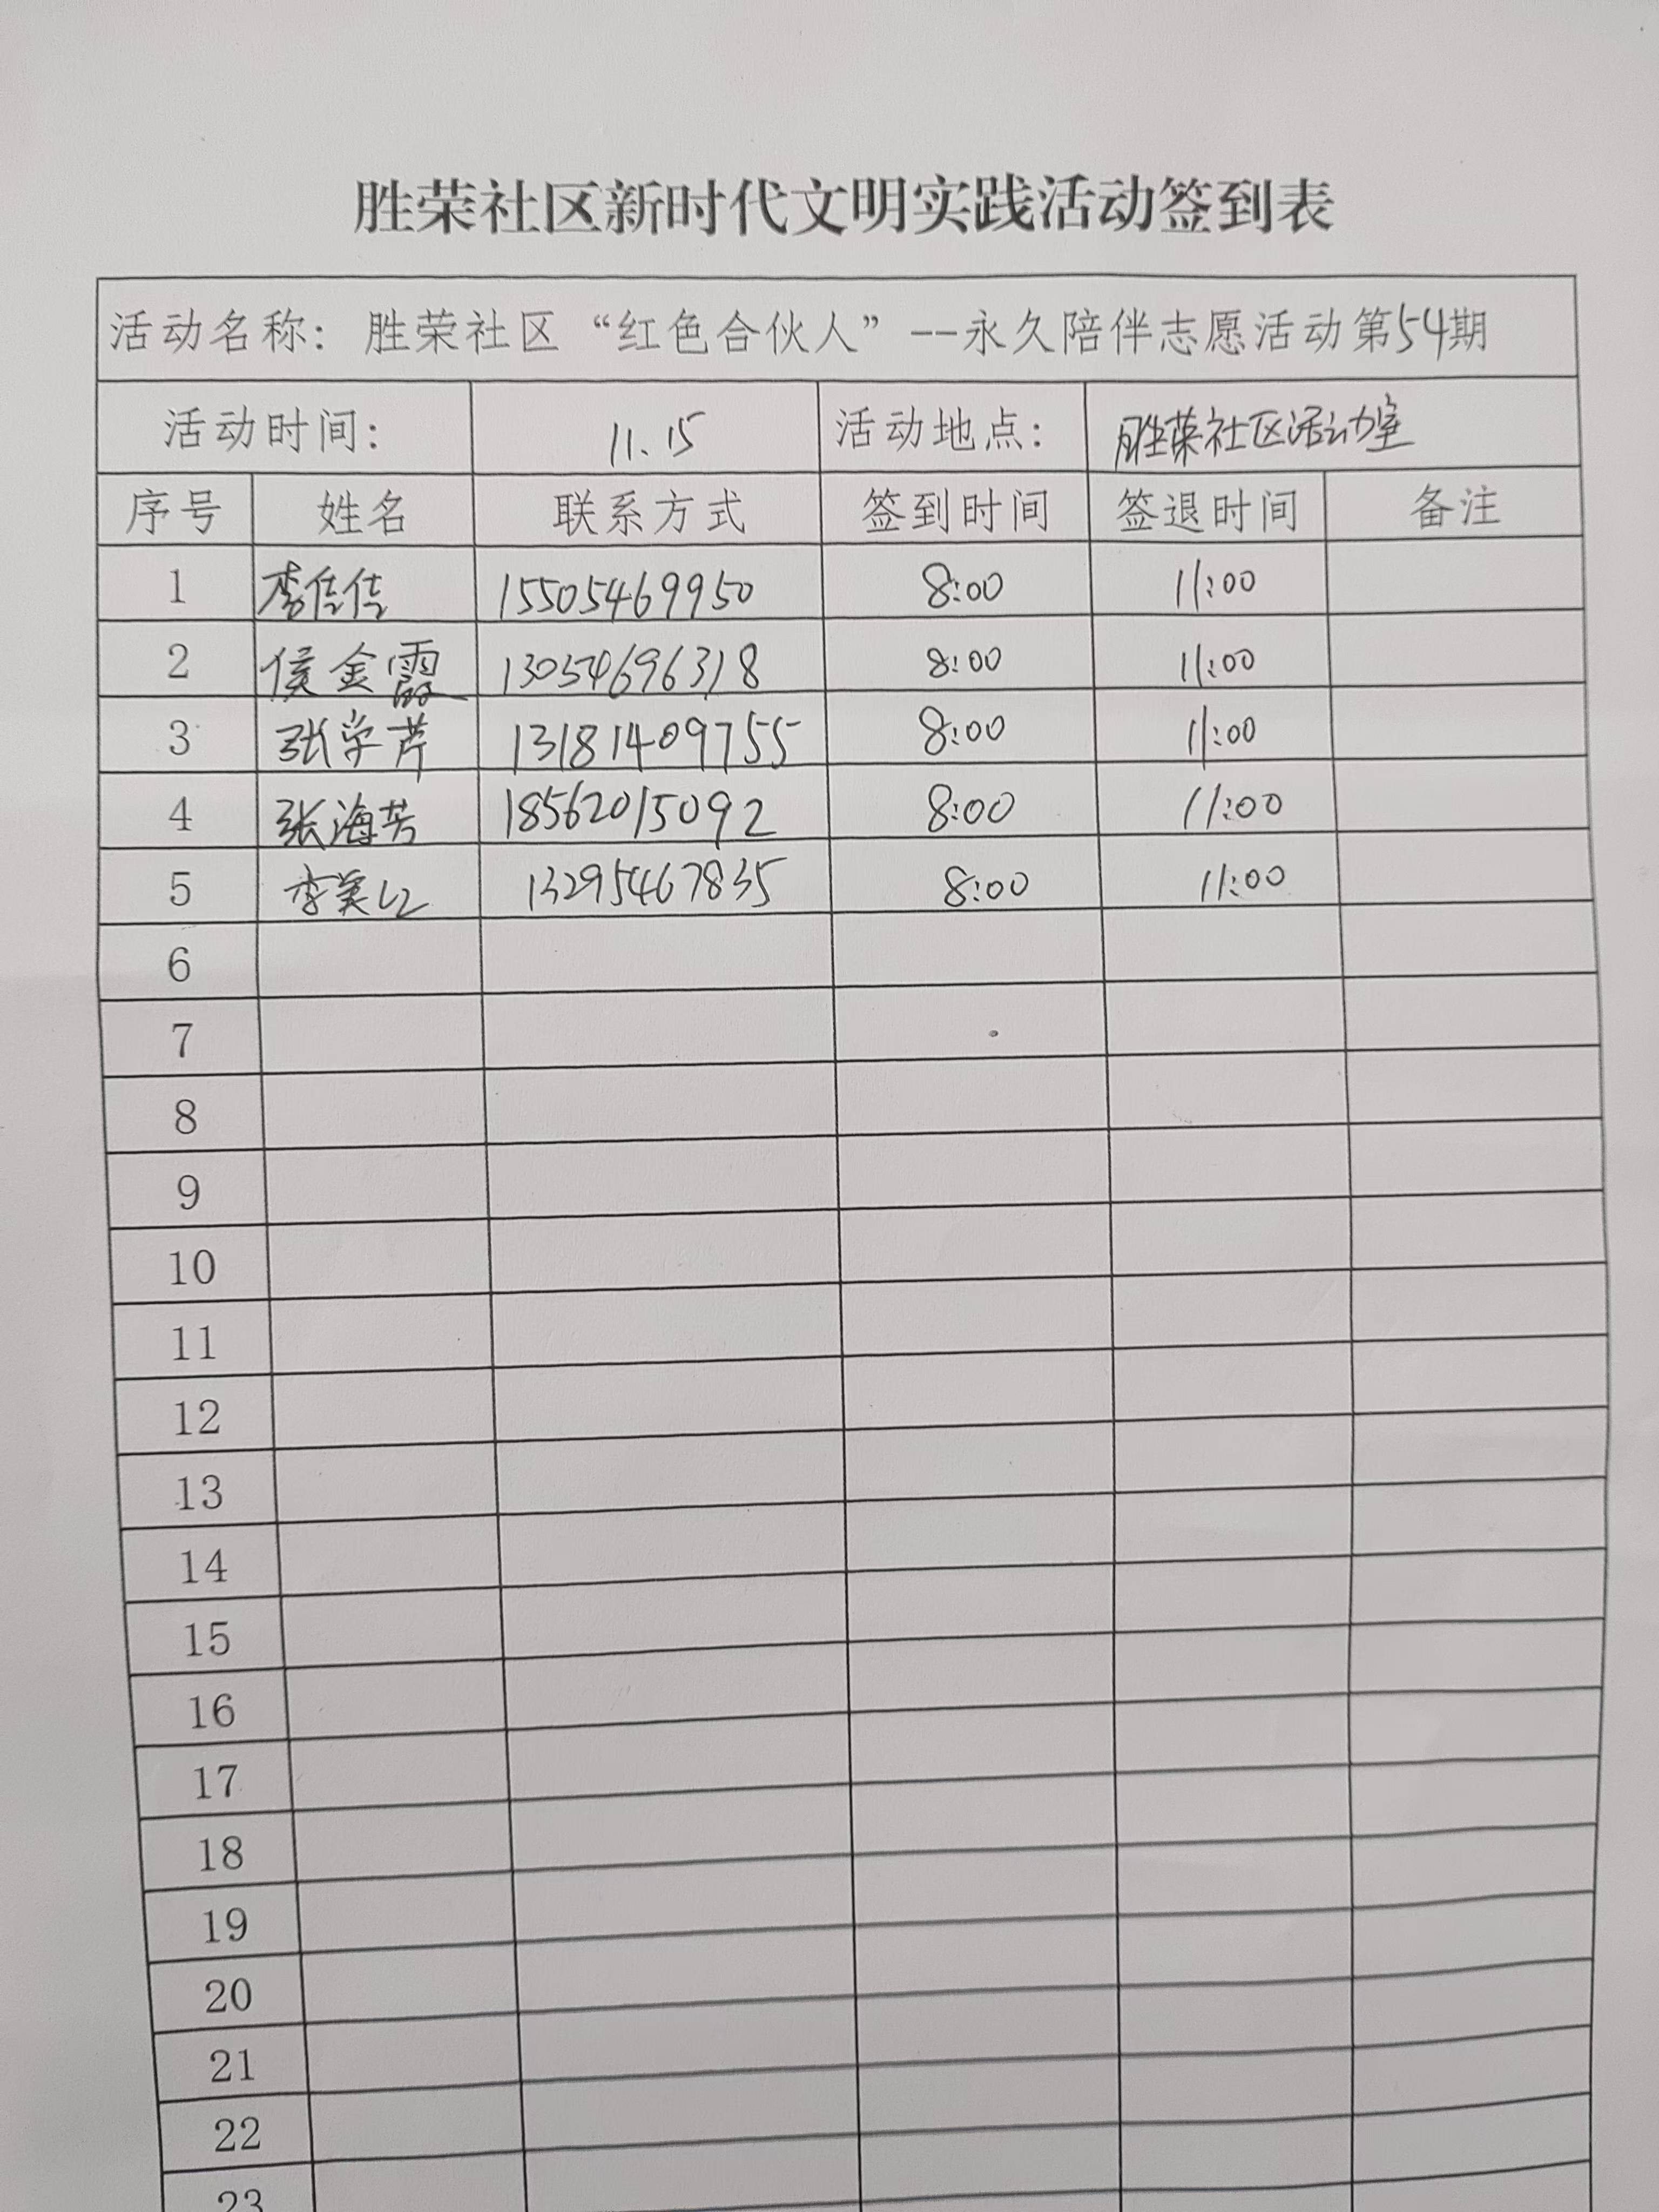 胜荣社区新时代文明实践活动签到表
活动名称：胜荣社区“红色合伙人”--永久陪伴志愿活动第54期
活动时间： 11.15 活动地点： 胜荣社区活动室
序号 姓名 联系方式 签到时间 签退时间 备注
1 李佳佳 15505469950 8:00 11:00
2 侯金霞 13054696318 8:00 11:00
3 张学芹 13181409755 8:00 11:00
4 张海芳 18562015092 8:00 11:00
5 李美红 13295467835 8:00 11:00
6
7
8
9
10
11
12
13
14
15
16
17
18
19
20
21
22
23